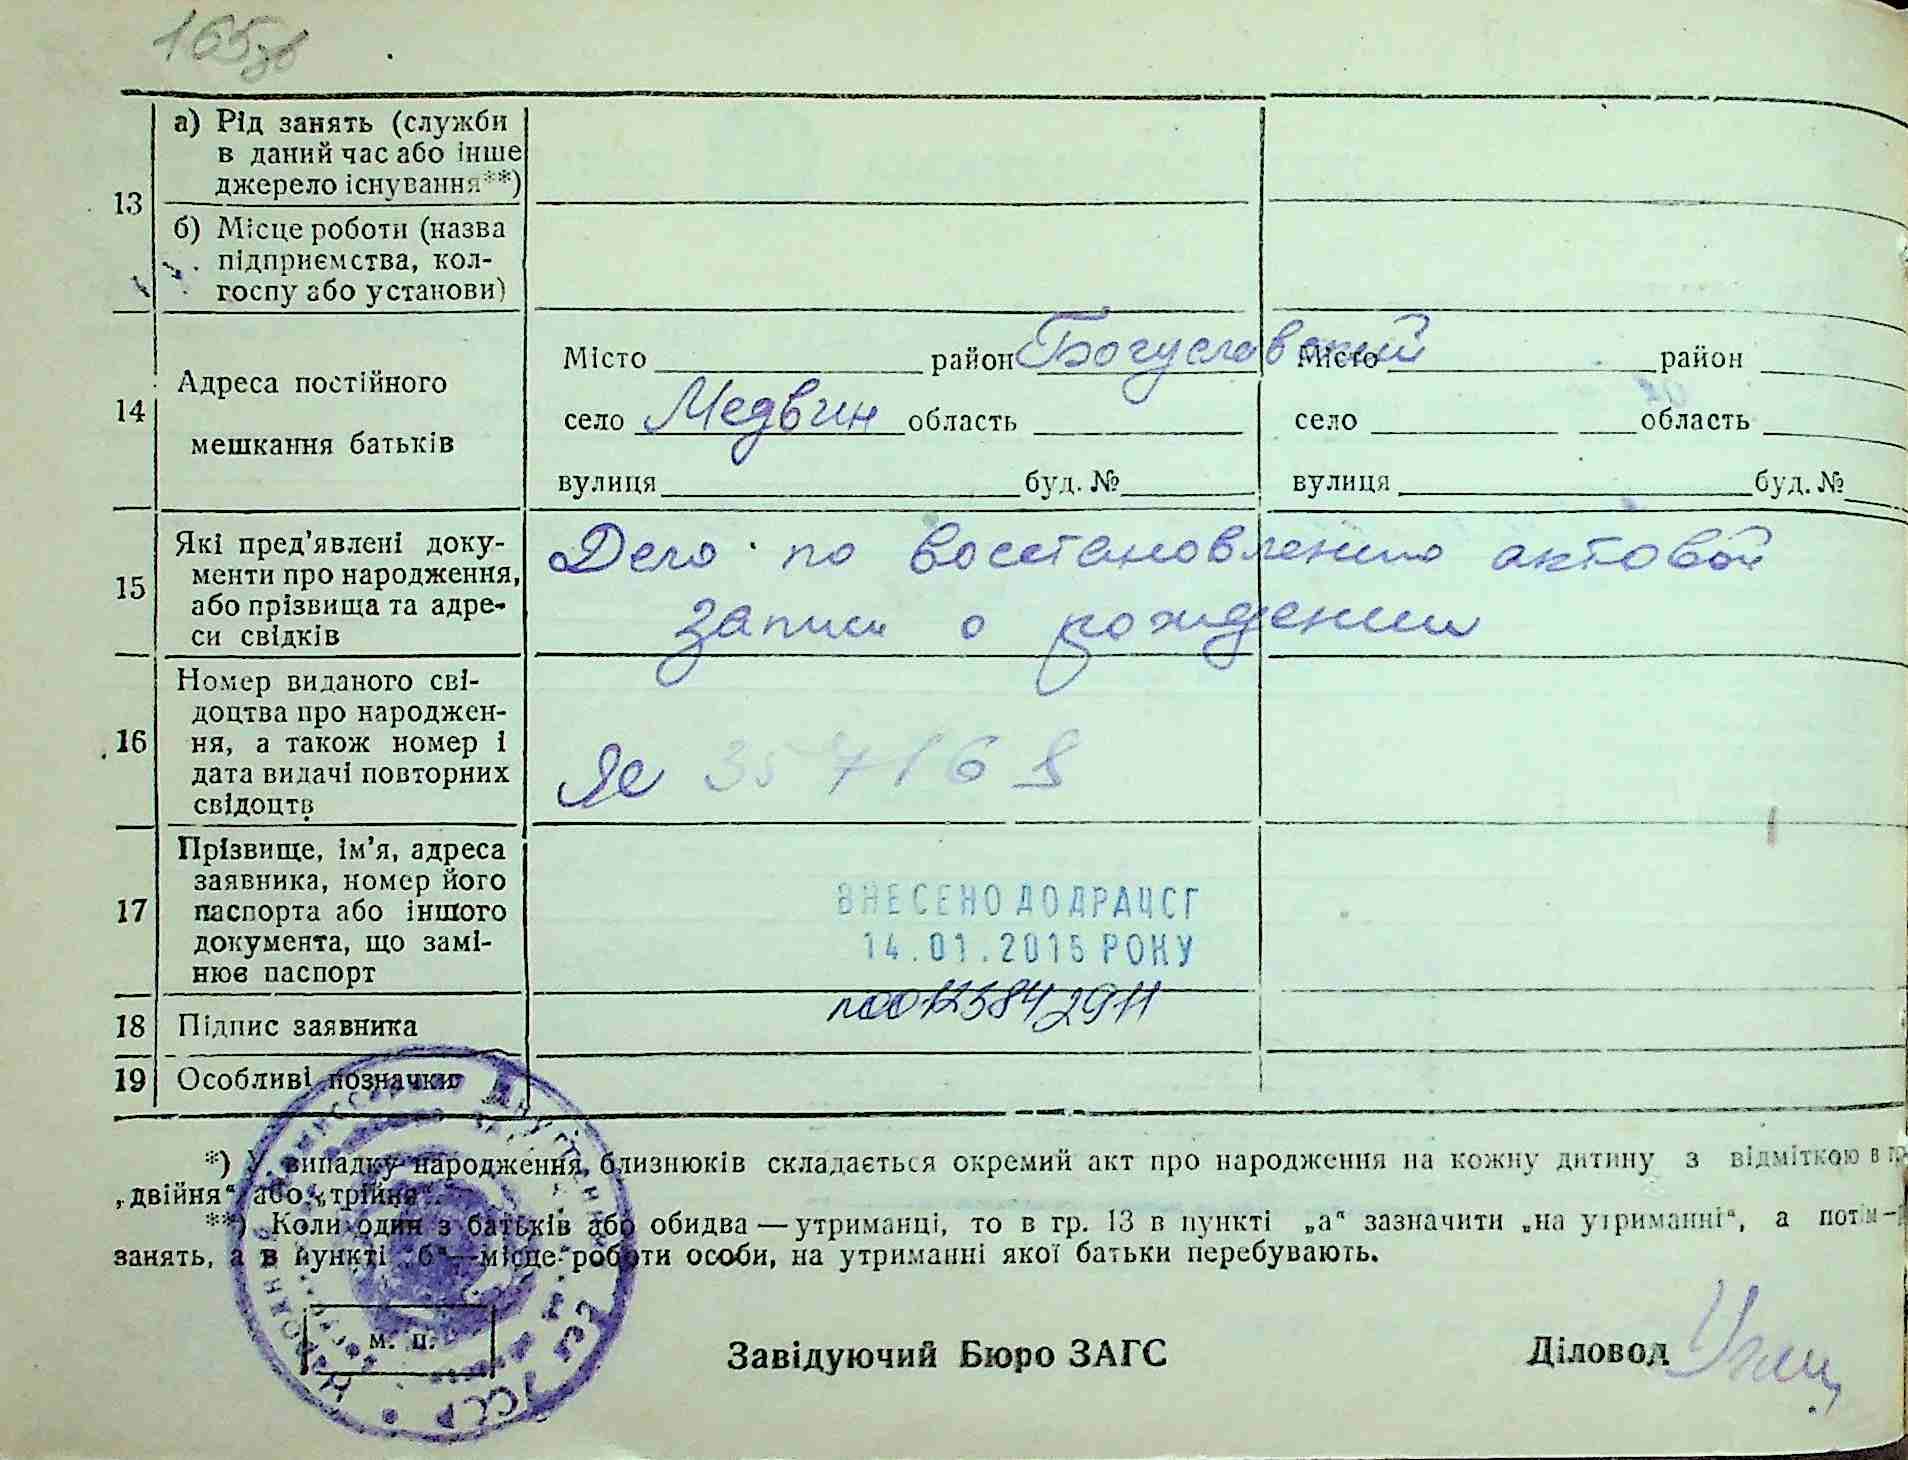 165зв
13
а) Рід занять (служби
в даний час або інше
джерело існування**)
б) Місце роботи (назва
підприємства, кол-
госпу або установи)
14
Адреса постійного
мешкання батьків
Місто район Богуславский
село Медвин область
вулиця буд. №
Місто район
село область
вулиця буд. №
15
Які пред’явлені доку-
менти про народження,
або прізвища та адре-
си свідків
Дело по восстановлению актовой
записи о рождении
16
Номер виданого сві-
доцтва про народжен-
ня, а також номер і
дата видачі повторних
свідоцтв
17
Прізвище, ім’я, адреса
заявника, номер його
паспорта або іншого
документа, що замі-
нює паспорт
ВНЕСЕНО ДО ДРАЦСГ
14.01.2015 РОКУ
18
Підпис заявника
19
Особливі позначки
*) У випадку народження близнюків складається окремий акт про народження на кожну дитину з відміткою в гр.
„двійня“ або „трійня“.
**) Коли один з батьків або обидва — утриманці, то в гр. 13 в пункті „а“ зазначити „на утриманні“, а потім
занять, а в пункті „б“—місце роботи особи, на утриманні якої батьки перебувають.
м. п.
Завідуючий Бюро ЗАГС
Діловод